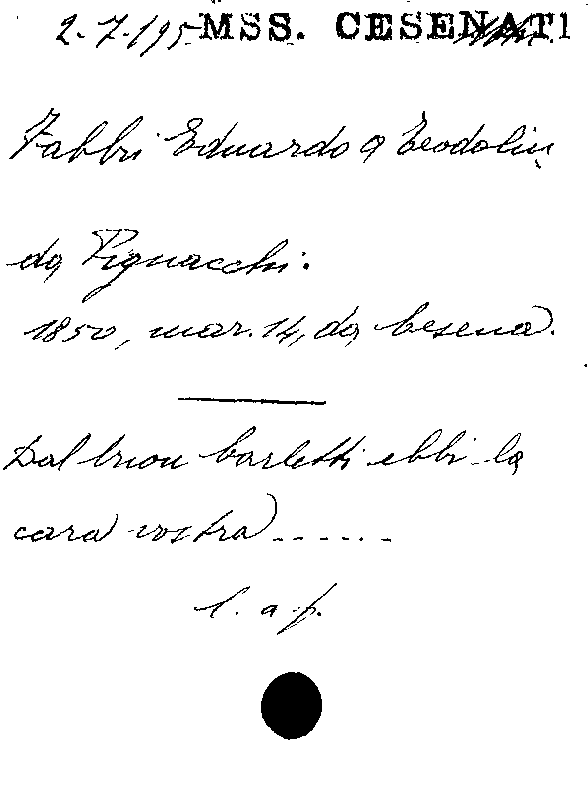 2-7-195 MSS. CESENATI
Fabbri Eduardo a Teodolin
da Pignacchi.
1850, mar. 14, da Cesena.
Dal buon Carletti ebbi la
cara vostra ......
l. a f.